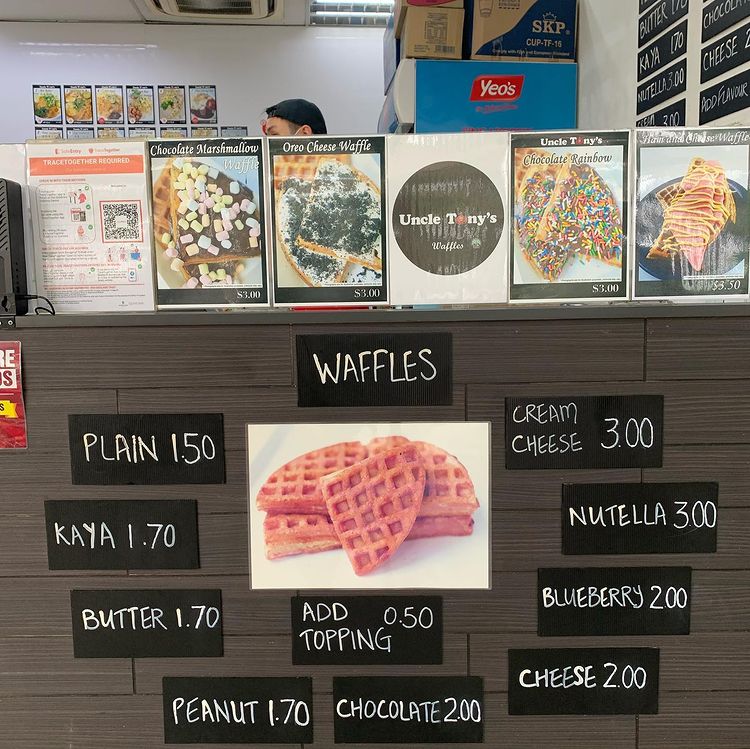 SKP
CUP-TF-16
Comply with Food and European Standard
Yeo's
BUTTER 1.70
KAYA 1.70
NUTELLA 3.00
CHEESE 2
ADD FLAVOUR
SafeEntry
TraceTogether
TRACETOGETHER REQUIRED
Chocolate Marshmallow
Waffle
$3.00
Oreo Cheese Waffle
$3.00
Uncle Tony's
Waffles
Uncle Tony's
Chocolate Rainbow
$3.00
Ham and Cheese Waffle
$3.50
WAFFLES
PLAIN 1.50
CREAM
CHEESE 3.00
KAYA 1.70
NUTELLA 3.00
BUTTER 1.70
ADD 0.50
TOPPING
BLUEBERRY 2.00
PEANUT 1.70
CHOCOLATE 2.00
CHEESE 2.00